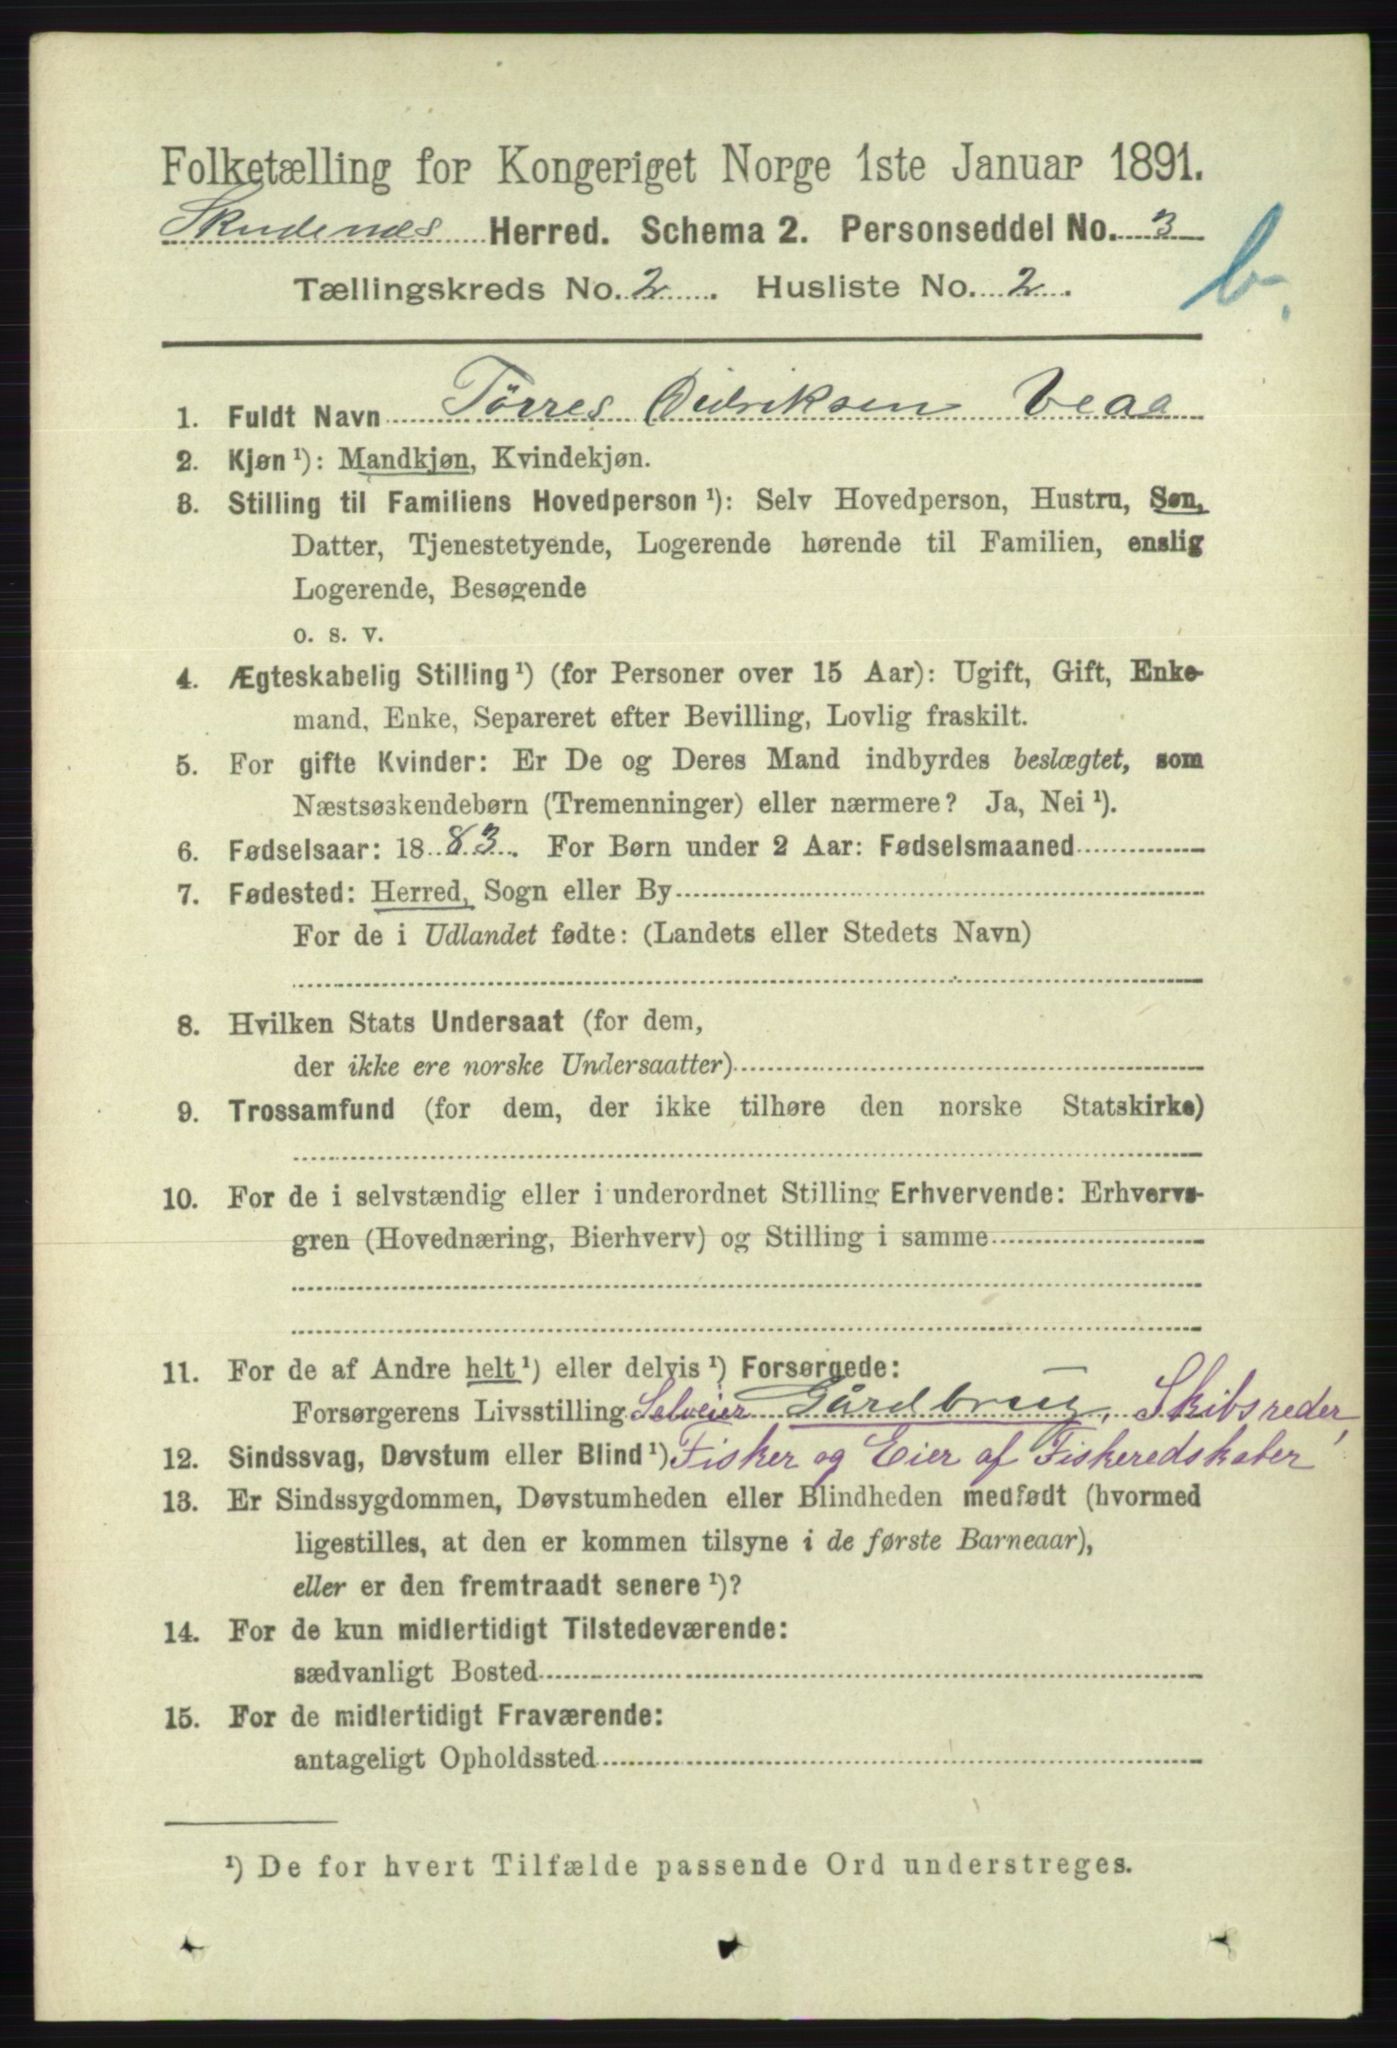 Folketælling for Kongeriget Norge 1ste Januar 1891.
Skudenæs Herred. Schema 2. Personseddel No. 3
b.
Tællingskreds No. 2. Husliste No. 2.
1. Fuldt Navn Tørres Didriksen Veaa
2. Kjøn¹): Mandkjøn, Kvindekjøn.
3. Stilling til Familiens Hovedperson¹): Selv Hovedperson, Hustru, Søn,
Datter, Tjenestetyende, Logerende hørende til Familien, enslig
Logerende, Besøgende
o. s. v.
4. Ægteskabelig Stilling¹) (for Personer over 15 Aar): Ugift, Gift, Enke-
mand, Enke, Separeret efter Bevilling, Lovlig fraskilt.
5. For gifte Kvinder: Er De og Deres Mand indbyrdes beslægtet, som
Næstsøskendebørn (Tremenninger) eller nærmere? Ja, Nei¹).
6. Fødselsaar: 1883. For Børn under 2 Aar: Fødselsmaaned
7. Fødested: Herred, Sogn eller By
For de i Udlandet fødte: (Landets eller Stedets Navn)
8. Hvilken Stats Undersaat (for dem,
der ikke ere norske Undersaatter)
9. Trossamfund (for dem, der ikke tilhøre den norske Statskirke)
10. For de i selvstændig eller i underordnet Stilling Erhvervende: Erhvervs-
gren (Hovednæring, Bierhverv) og Stilling i samme
11. For de af Andre helt¹) eller delvis¹) Forsørgede:
Forsørgerens Livsstilling Selveier Gårdbrug, Skibsreder,
12. Sindssvag, Døvstum eller Blind¹) Fisker og Eier af Fiskeredskaber
13. Er Sindssygdommen, Døvstumheden eller Blindheden medfødt (hvormed
ligestilles, at den er kommen tilsyne i de første Barneaar),
eller er den fremtraadt senere¹)?
14. For de kun midlertidigt Tilstedeværende:
sædvanligt Bosted
15. For de midlertidigt Fraværende:
antageligt Opholdssted
¹) De for hvert Tilfælde passende Ord understreges.